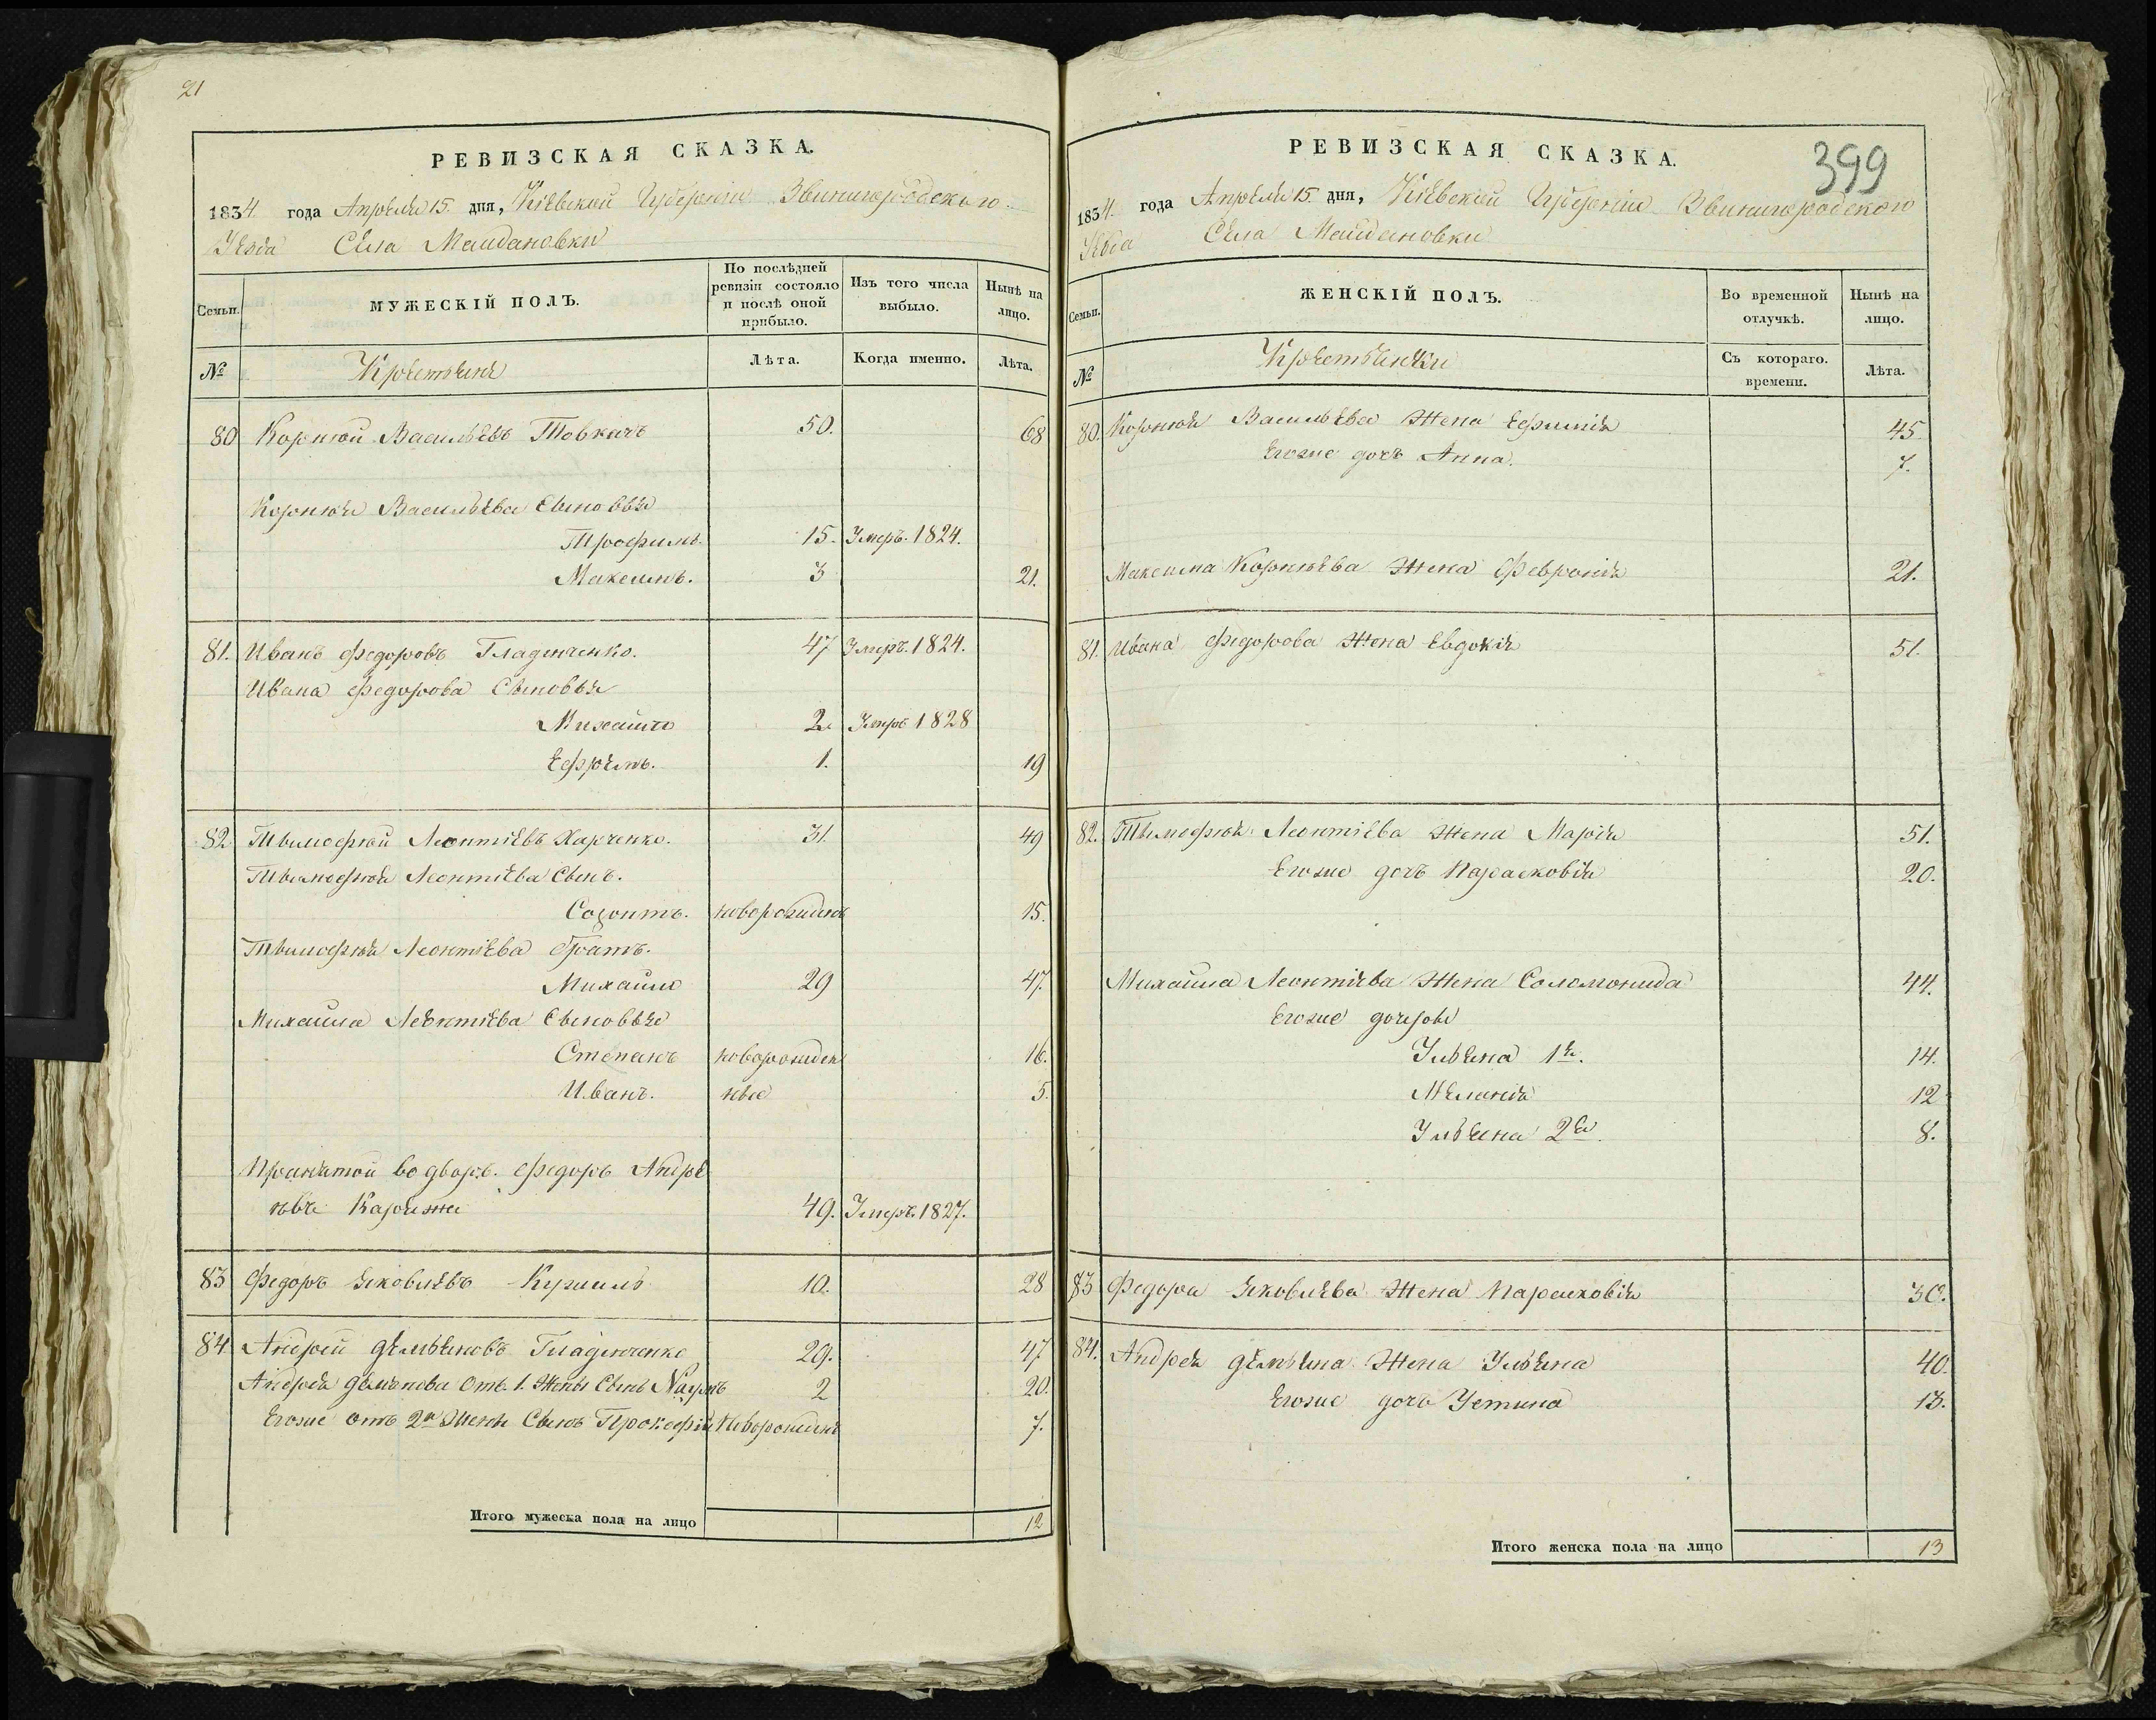 21
РЕВИЗСКАЯ СКАЗКА.
1834 года Апреля 15 дня, Кіевской Губерніи Звенигородского
Уезда Села Майдановки
Семьи.
МУЖЕСКІЙ ПОЛЪ.
По послѣдней ревизіи состояло и послѣ оной прибыло.
Изъ того числа выбыло.
Нынѣ на лицо.
№
Крестьяне
Лѣта.
Когда именно.
Лѣта.
80 Корней Васильевъ Товкачъ 50. 68
Корнея Васильева Сыновья
Трофимъ. 15. Умеръ. 1824.
Максимъ. 3 21.
81. Иванъ Федоровъ Гладченко. 47 Умеръ. 1824.
Ивана Федорова Сыновья
Михайло 2. Умеръ 1828
Ефремъ. 1. 19
82 Тымофей Леонтіевъ Харченко. 31. 49
Тымофея Леонтіева Сынъ.
Созонтъ. новорожденъ 15.
Тымофея Леонтіева братъ.
Михайло 29 47.
Михайла Леонтіева Сыновья
Степанъ новорожден 16.
Иванъ. ные 5.
Принятой во дворъ. Федоръ Андре
евъ 49. Умеръ. 1827.
83 Федоръ Яковлевъ 10. 28
84 Андрей Демьяновъ Гладченко 29. 47
Андрея Демьянова отъ 1. Жены Сынъ Наумъ 2 20.
Егоже отъ 2й Жены Сынъ Прокофій Новорожденъ 7.
Итого мужеска пола на лицо 12
399
РЕВИЗСКАЯ СКАЗКА.
1834. года Апреля 15 дня, Кіевской Губерніи Звенигородского
Уезда Села Майдановки
Семьи.
ЖЕНСКІЙ ПОЛЪ.
Во временной отлучкѣ.
Нынѣ на лицо.
№
Крестьянки
Съ котораго. времени.
Лѣта.
80. Корнея Васильева Жена Ефимія 45.
Егоже дочь Анна. 7.
Максима Корнеева Жена Февронія 21.
81. Ивана Федорова Жена Евдокія 51.
82. Тымофея Леонтіева Жена Марія 51.
Егоже дочь Парасковія 20.
Михайла Леонтіева Жена Соломонида 44.
Егоже дочери
Ульяна 1я. 14.
Меланія 12
Ульяна 2я. 8.
83 Федора Яковлева Жена Парасковія 30.
84. Андрея Демьяна Жена Ульяна 40.
Егоже дочь Устина 13.
Итого женска пола на лицо 13